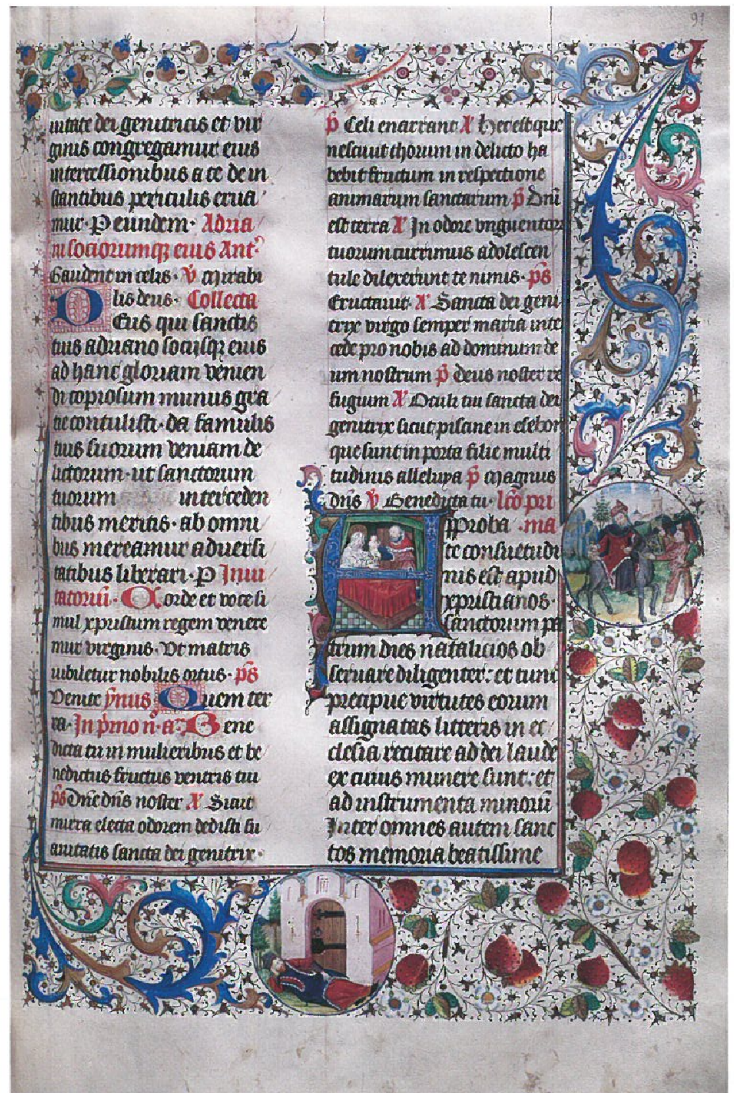 91
nitate dei genitricis et vir
ginis congregamur eius
intercessionibus a te de in
stantibus periculis erua
mur · P eundem · Adria
ni sociorumqz eius Ant
Gaudent in celis · v mirabi
lis deus · Collecta
Deus qui sanctis
tuis adriano sociisqz eius
ad hanc gloriam venien
di copiosum munus gra
tie contulisti · da famulis
tuis suorum veniam de
lictorum · ut sanctorum
tuorum interceden
tibus meritis · ab omni
bus mereamur adversi
tatibus liberari · P Inui
tatoriū · Corde et voce si
mul xpristum regem venere
mur virginis · Ut matris
iubiletur nobilis ortus · ps
Venite ymus Quem ter
ra · In pmo n a Bene
dicta tu in mulieribus et be
nedictus fructus ventris tui
ps Dne dns noster X Sicut
mirra electa odorem dedisti su
avitatis sancta dei genitrix ·
p Celi enarrant X Hec est que
nescivit thorum in delicto ha
bebit fructum in respectione
animarum sanctarum p Dni
est terra X In odore unguentor
tuorum currimus adolescen
tule dilexerunt te nimis · ps
Eructavit · X Sancta dei geni
trix virgo semper maria inte
cede pro nobis ad dominum de
um nostrum p deus noster re
fugium X Oculi tui sancta dei
genitrix sicut piscine in esebon
que sunt in porta filie multi
tudinis alleluya p magnus
dns v Benedicta tu · lcō pri
Approba · ma
te consuetudi
nis est apud
xpristianos ·
sanctorum pa
trum dies natalicios ob
servare diligenter : et tunc
precipue virtutes eorum
assignatas litteris in ec
clesia recitare ad dei laude
ex cuius munere sunt : et
ad instrumenta minorū
Inter omnes autem sanc
tos memoria beatissime